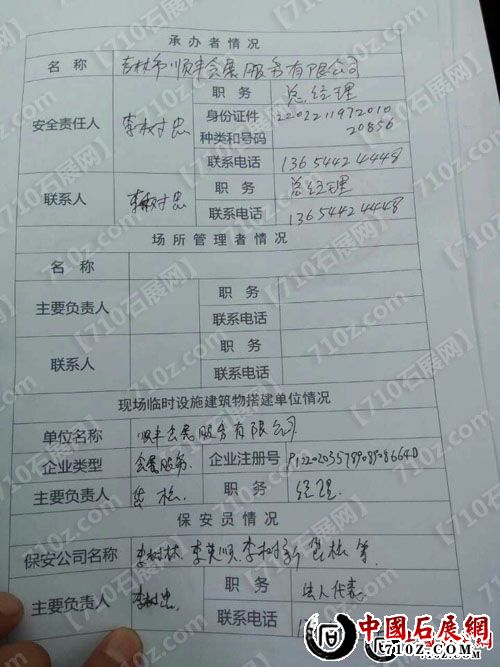 承办者情况
名称 吉林市顺丰会展服务有限公司
安全责任人 李树忠 职务 总经理
身份证件种类和号码 220221197201020856
联系电话 13654424448
联系人 李树忠 职务 总经理
联系电话 13654424448
场所管理者情况
名称
主要负责人 职务
联系电话
联系人 职务
联系电话
现场临时设施建筑物搭建单位情况
单位名称 顺丰会展服务有限公司
企业类型 会展服务 企业注册号
主要负责人 职务 经理
保安员情况
保安公司名称 李树林、李英顺、李树新 等
主要负责人 李树忠 职务 法人代表
联系电话
【710石展网】
710z.com
中國石展網
710Z.COM